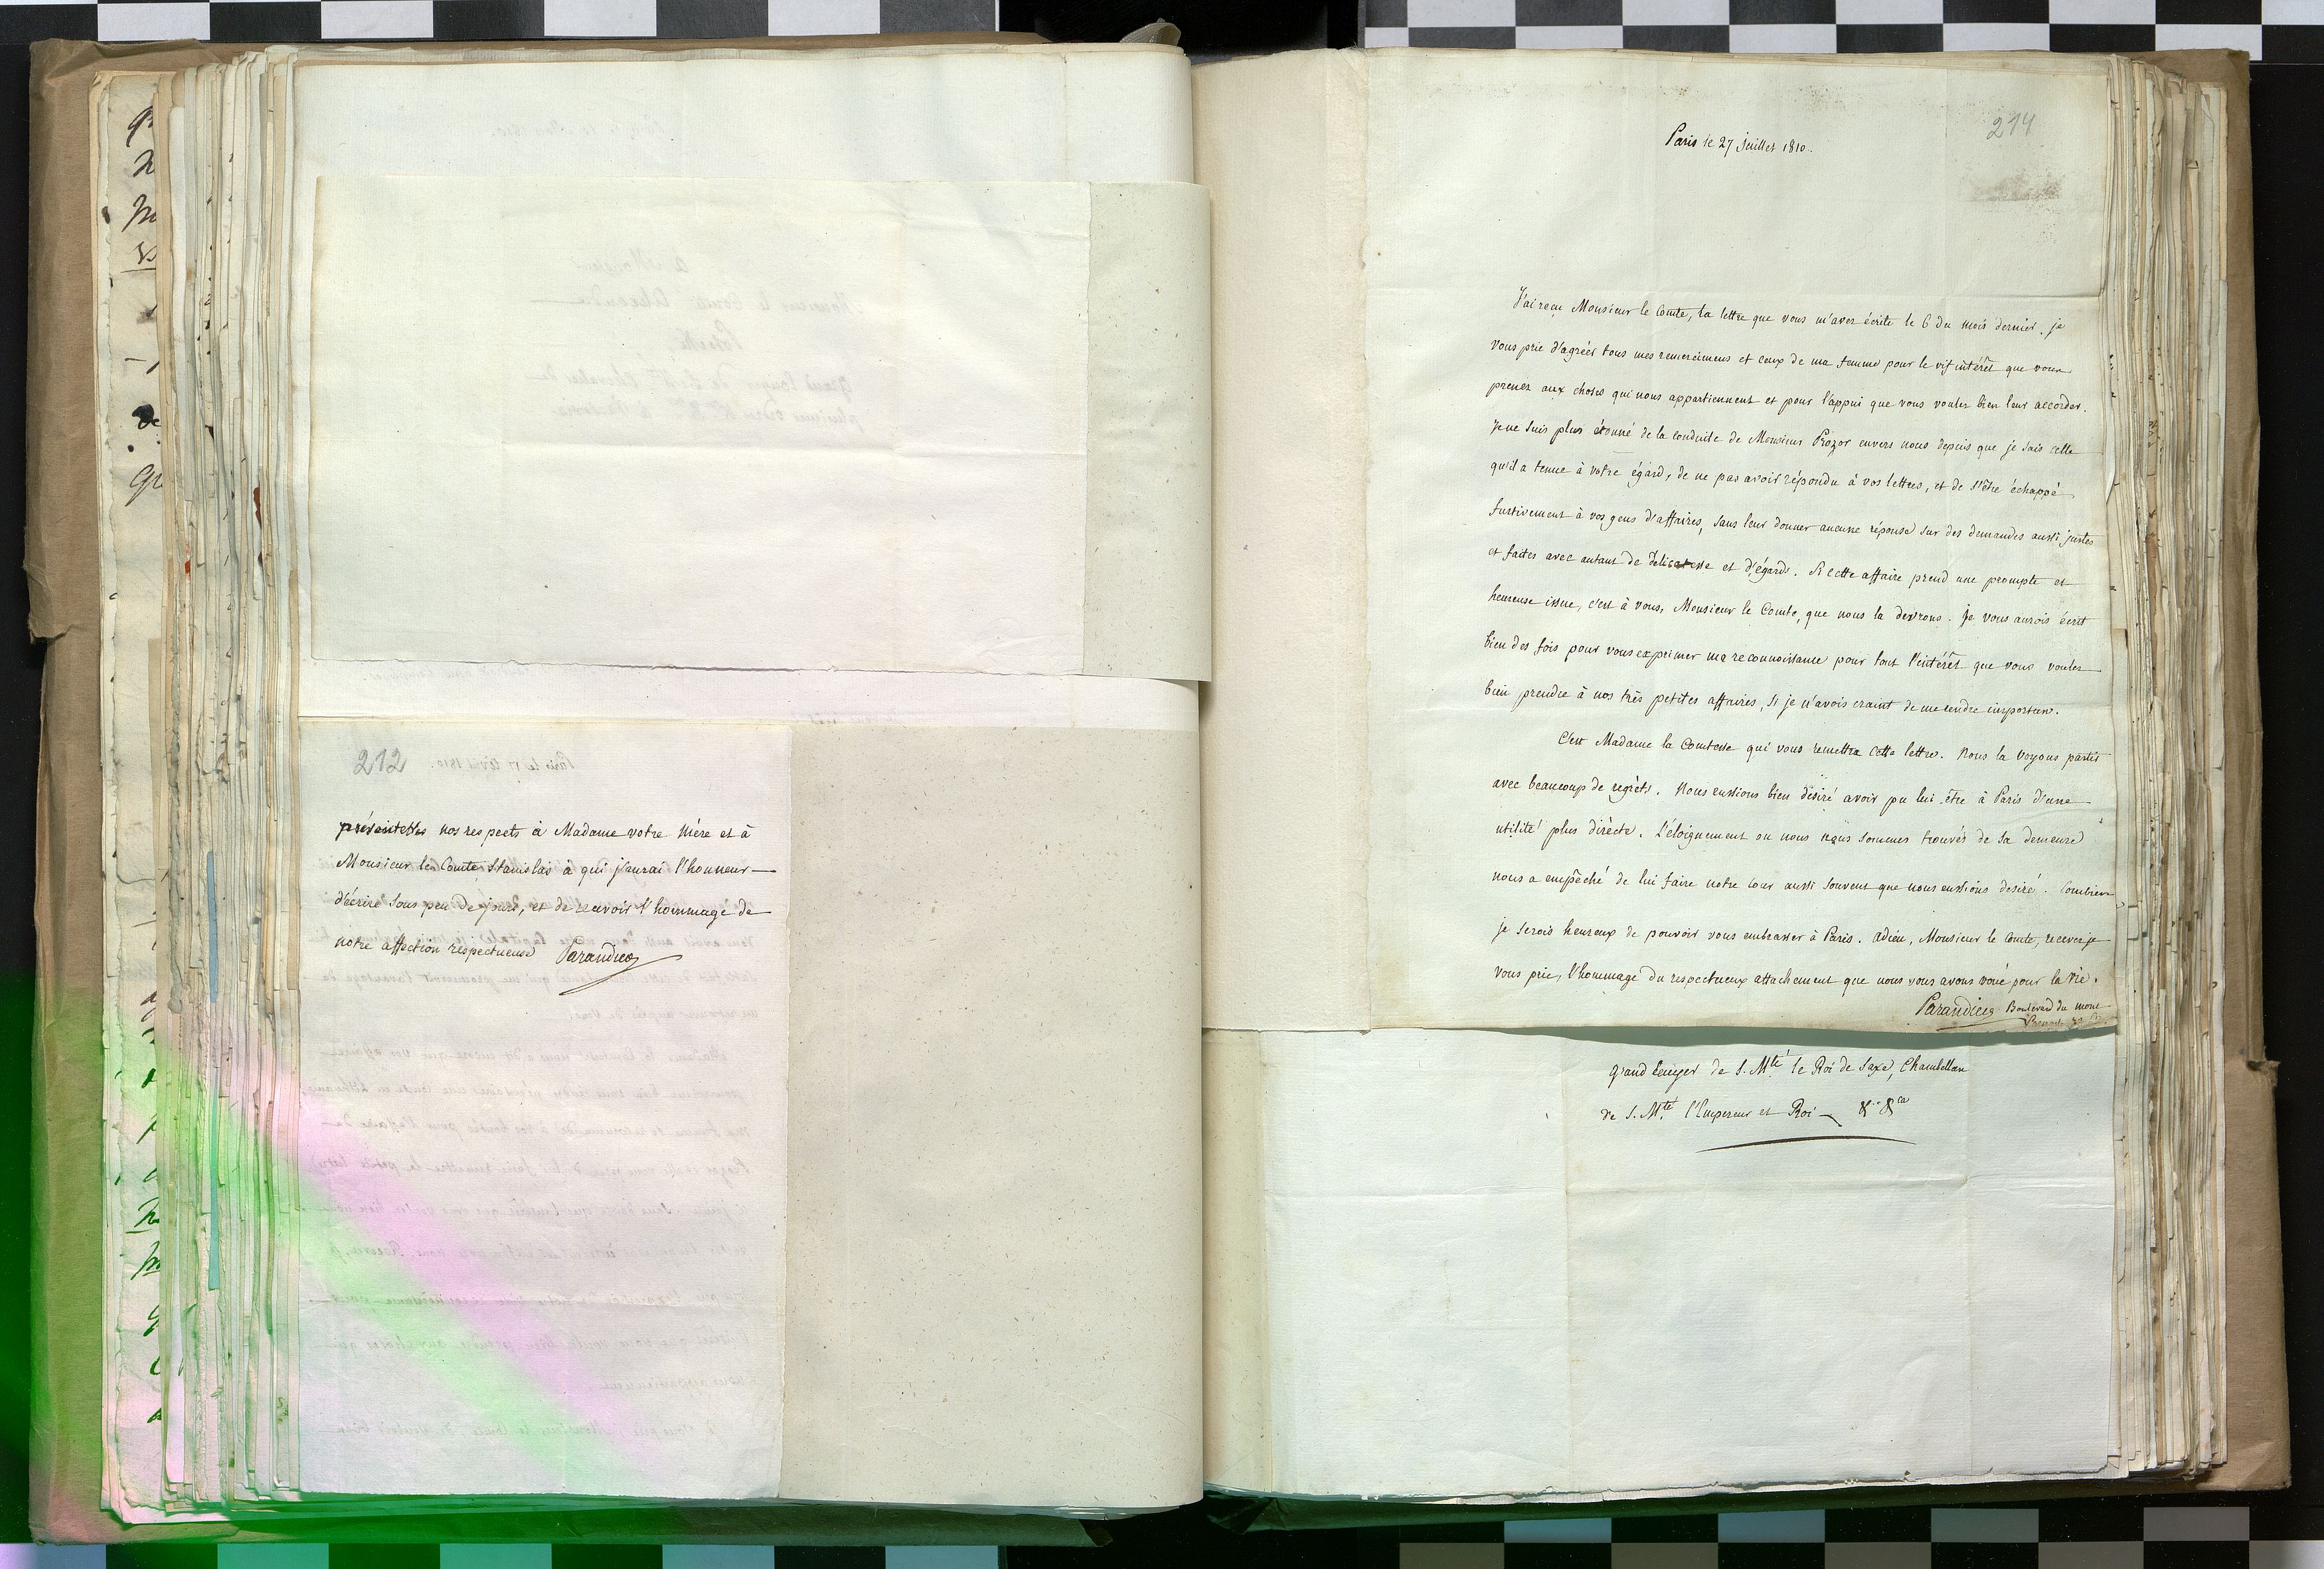 212
présenter nos respects à Madame votre Mère et à
Monsieur le Comte Stanislas à qui j'aurai l'honneur
d'écrire sous peu de jours, et de recevoir l'hommage de
notre affection respectueuse Parandier
214
Paris le 27 juillet 1810.
J'ai reçu Monsieur le Comte, la lettre que vous m'avez écrite le 6 du mois dernier. je
vous prie d'agréer tous mes remercimens et ceux de ma femme pour le vif intérêt que vous
prenez aux choses qui nous appartiennent et pour l'appui que vous voulez bien leur accorder.
Je ne suis plus étonné de la conduite de Monsieur Prozor envers nous depuis que je sais celle
qu'il a tenue à votre égard, de ne pas avoir répondu à vos lettres, et de s'être échappé
furtivement à vos gens d'affaires, sans leur donner aucune réponse sur des demandes aussi justes
et faites avec autant de délicatesse et d'égards. Si cette affaire prend une prompte et
heureuse issue, c'est à vous, Monsieur le Comte, que nous la devrons. Je vous aurois écrit
bien des fois pour vous exprimer ma reconnoissance pour tout l'intérêt que vous voulez
bien prendre à nos très petites affaires, si je n'avois craint de me rendre importun.
C'est Madame la Comtesse qui vous remettra cette lettre. Nous la voyons partir
avec beaucoup de regrèts. Nous eussions bien désiré avoir pu lui être à Paris d'une
utilité plus dirècte. L'éloignement ou nous nous sommes trouvés de sa demeure
nous a empêché de lui faire notre cour aussi souvent que nous eussions desiré. Combien
je serois heureux de pouvoir vous embrasser à Paris. adieu, Monsieur le Comte, recevez je
vous prie, l'hommage du respectueux attachement que nous vous avons voué pour la vie.
Parandier Boulevard du mont
grand Ecuyer de S. Mté le Roi de Saxe, Chambellan
de S. Mté l'Empereur et Roi